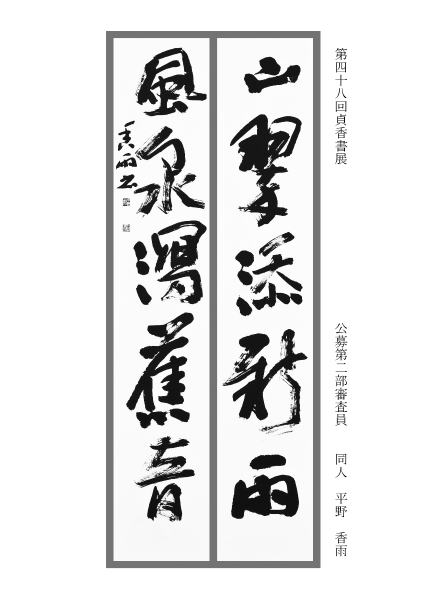 第四十八回貞香書展
公募第二部審査員 同人 平野 香雨
山翠添新雨
風泉濁蕉音
香雨书